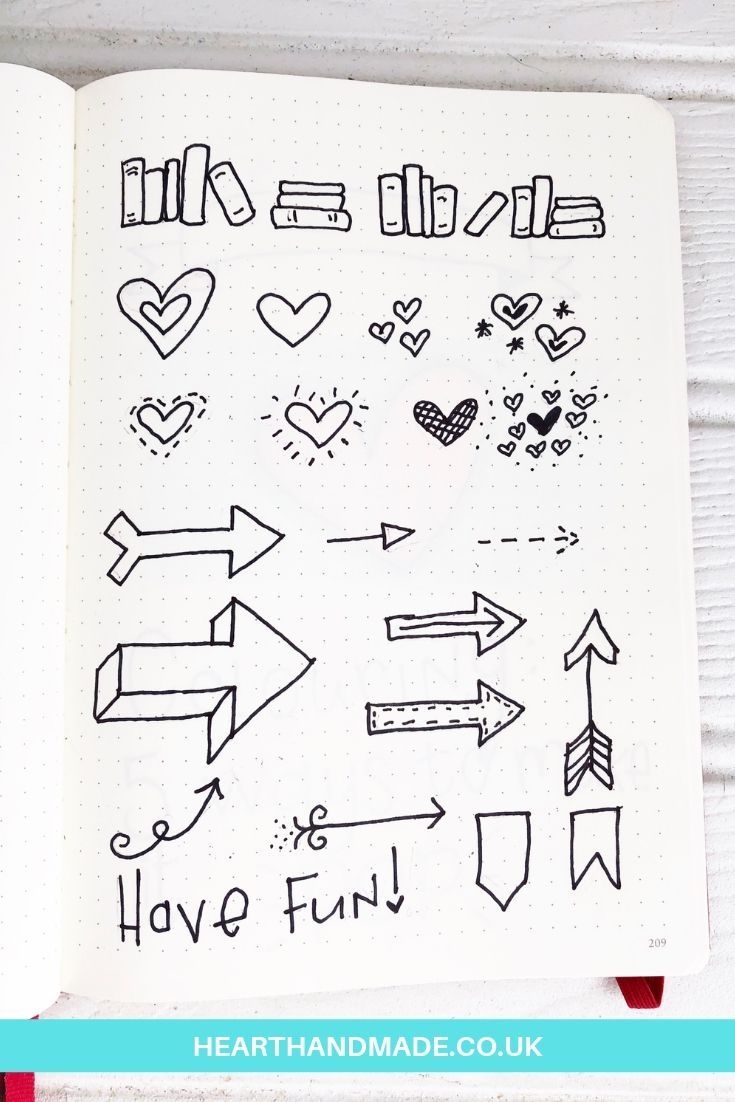 Colouring:
Have Fun!
209
HEARTHANDMADE.CO.UK